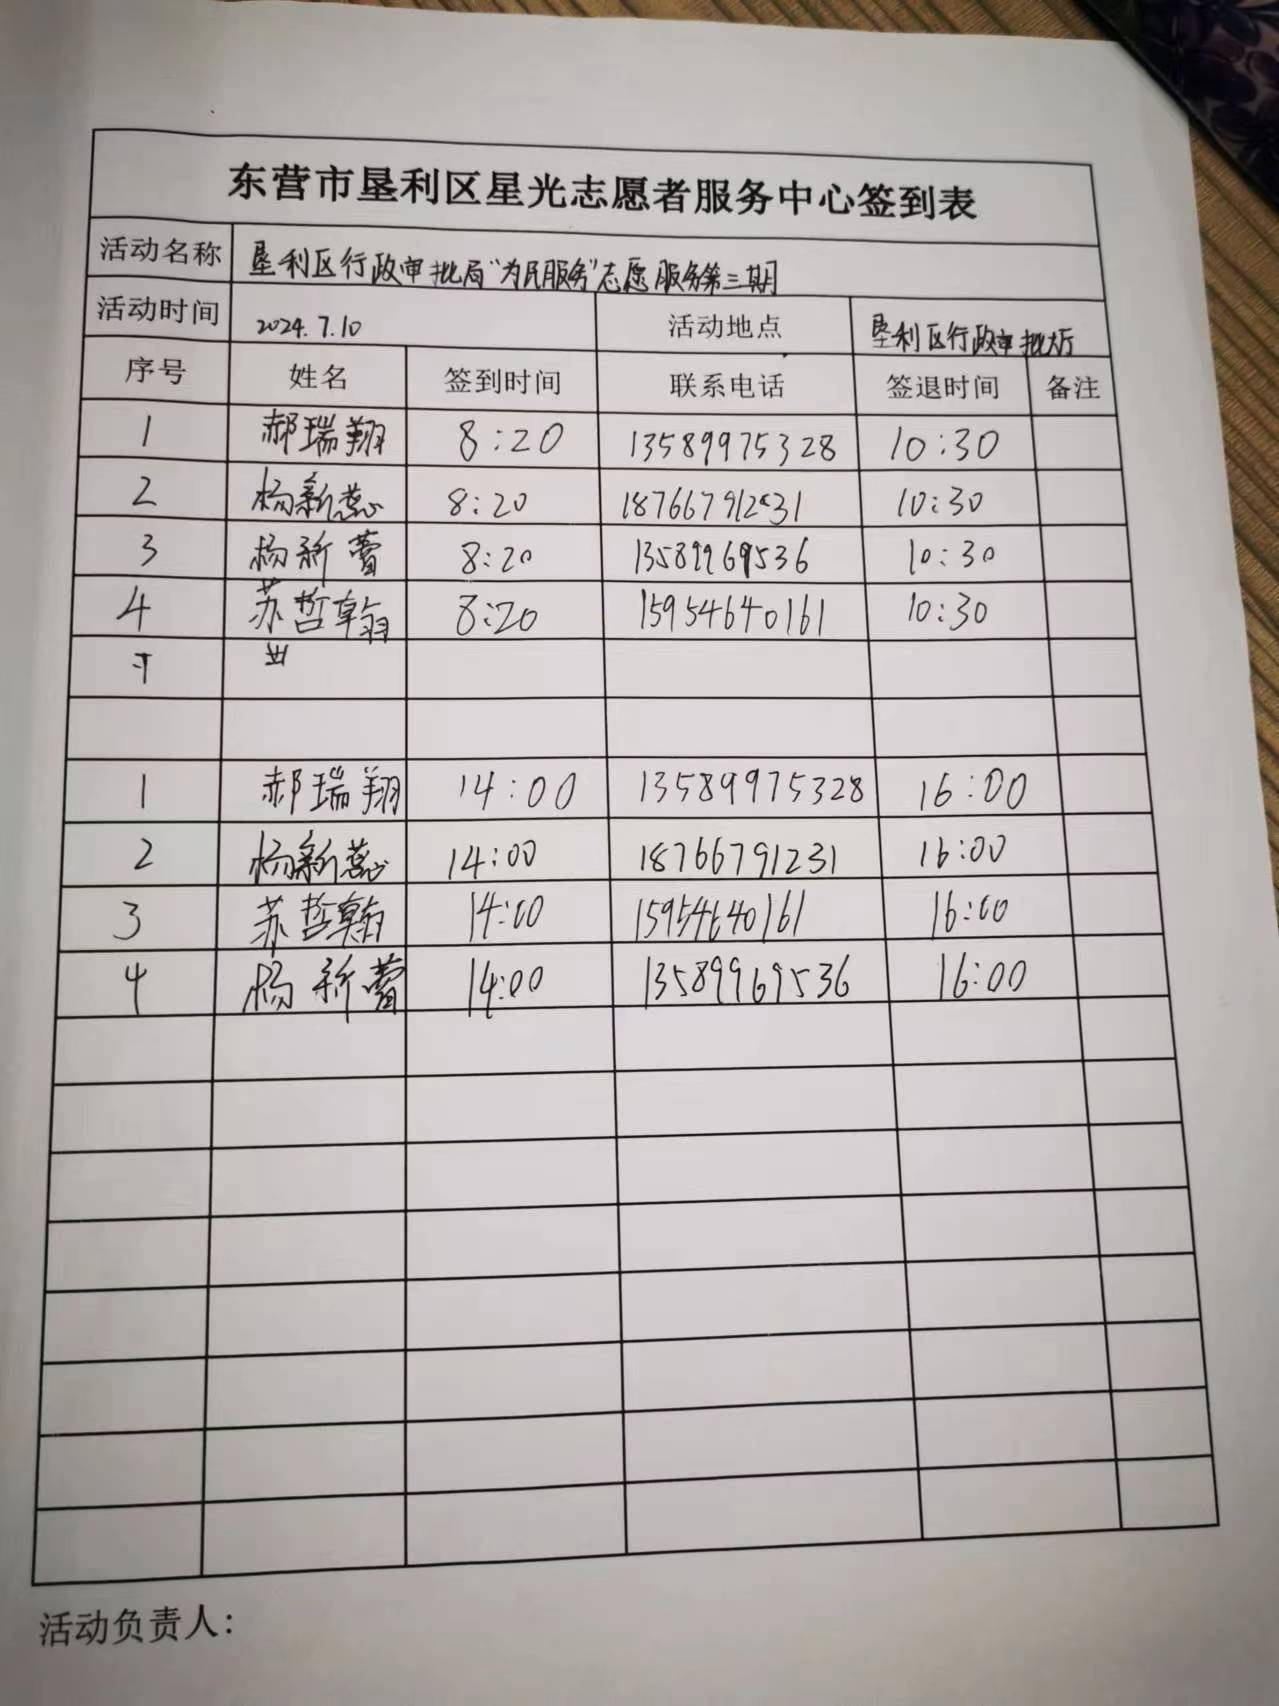 东营市垦利区星光志愿者服务中心签到表
活动名称 垦利区行政审批局“为民服务”志愿服务第三期
活动时间 2024.7.10 活动地点 垦利区行政审批大厅
序号 姓名 签到时间 联系电话 签退时间 备注
1 郝瑞翔 8:20 13589975328 10:30
2 杨新蕊 8:20 18766791231 10:30
3 杨新蕾 8:20 13589969536 10:30
4 苏哲翰 8:20 15954640161 10:30
下 业
1 郝瑞翔 14:00 13589975328 16:00
2 杨新蕊 14:00 18766791231 16:00
3 苏哲翰 14:00 15954640161 16:00
4 杨新蕾 14:00 13589969536 16:00
活动负责人: